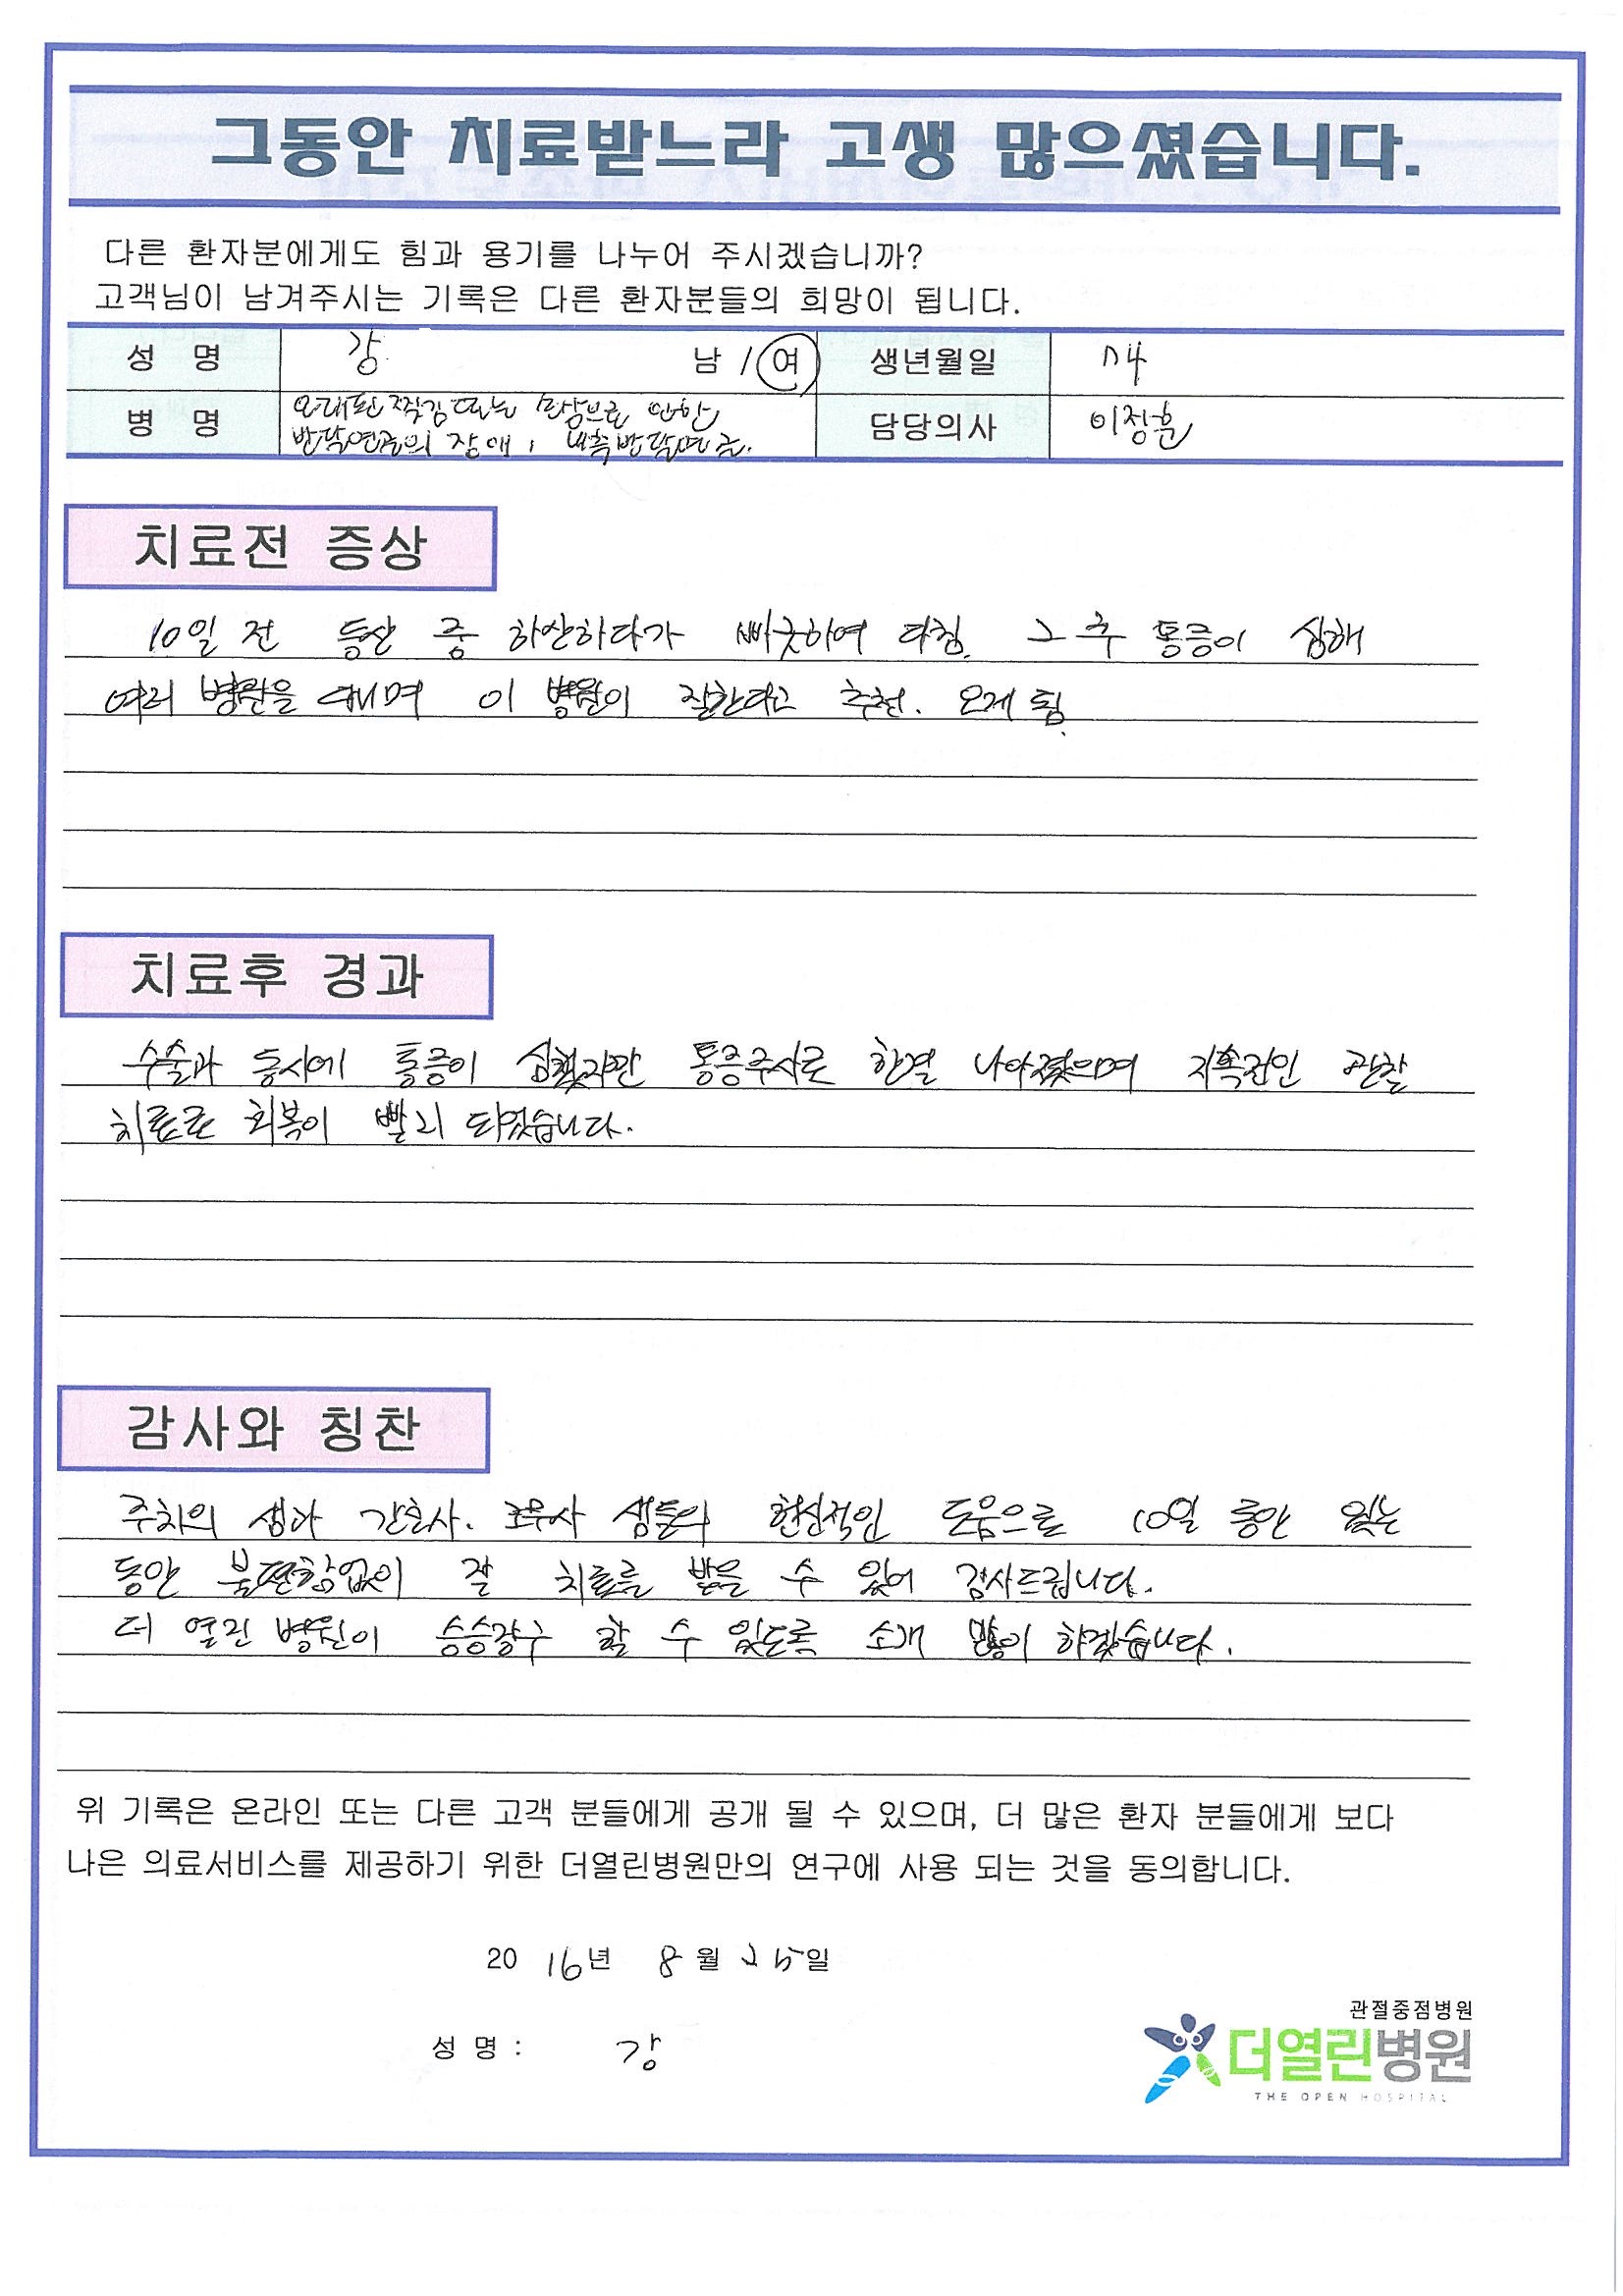 그동안 치료받느라 고생 많으셨습니다.
다른 환자분에게도 힘과 용기를 나누어 주시겠습니까?
고객님이 남겨주시는 기록은 다른 환자분들의 희망이 됩니다.
성 명 강 남 / 여 생년월일 74
병 명 오래된 찢김 또는 손상으로 인한
반달연골의 장애, 내측반달연골. 담당의사 이정훈
치료전 증상
10일 전 등산 중 하산하다가 삐끗하여 다침. 그 후 통증이 심해
여러 병원을 대며 이 병원이 잘한다고 추천. 오게 됨.
치료후 경과
수술과 동시에 통증이 심했지만 통증주사로 한결 나아졌으며 지속적인 관찰
치료로 회복이 빨리 되었습니다.
감사와 칭찬
주치의 샘과 간호사. 조무사 샘들의 헌신적인 도움으로 10일 동안 있는
동안 불편함없이 잘 치료를 받을 수 있어 감사드립니다.
더 열린 병원이 승승장구 할 수 있도록 소개 많이 하겠습니다.
위 기록은 온라인 또는 다른 고객 분들에게 공개 될 수 있으며, 더 많은 환자 분들에게 보다
나은 의료서비스를 제공하기 위한 더열린병원만의 연구에 사용 되는 것을 동의합니다.
20 16년 8월 25일
성 명 : 강
관절중점병원
더열린병원
THE OPEN HOSPITAL